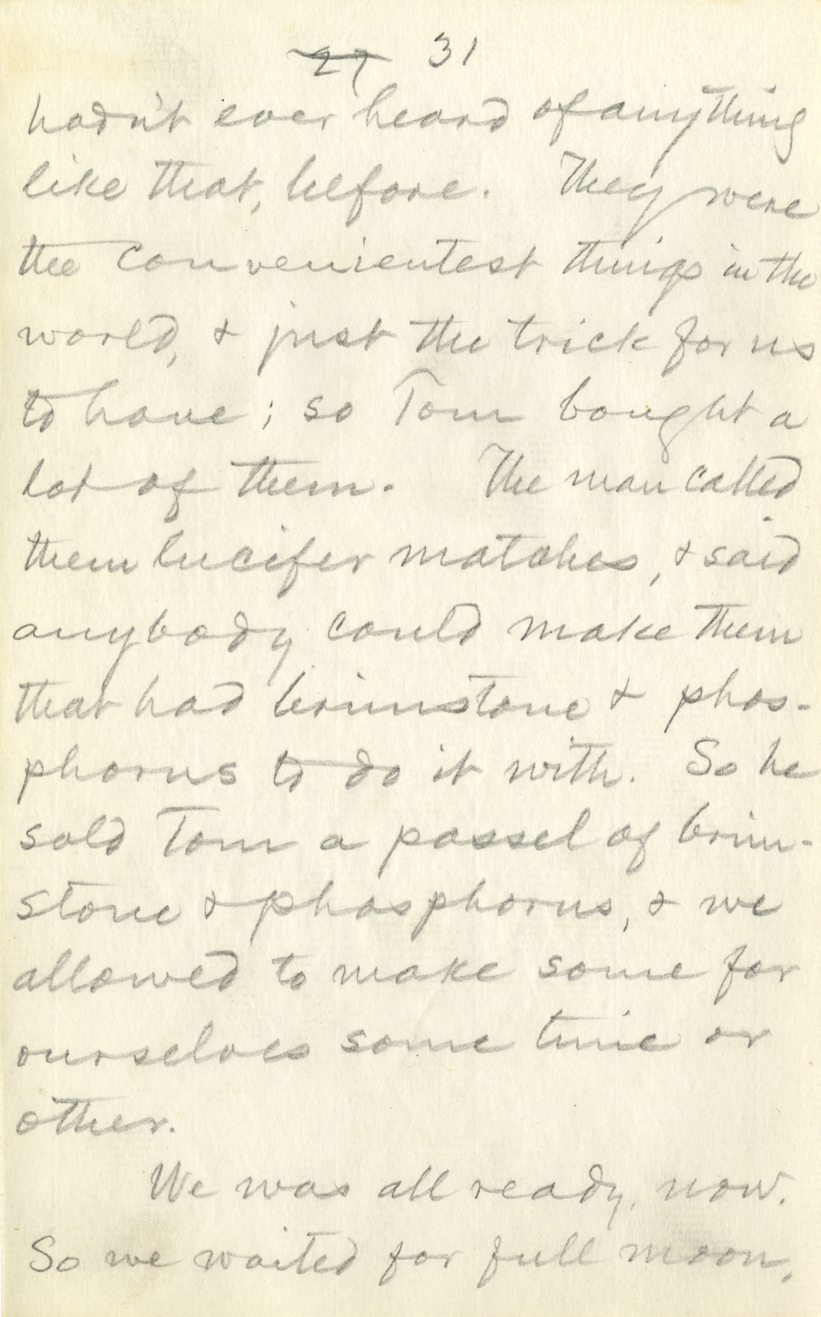 27 31
hadn't ever heard of anything
like that, before. They were
the convenientest things in the
world, & just the trick for us
to have; so Tom bought a
lot of them. The man called
them lucifer matches, & said
anybody could make them
that had brimstone & phos-
phorus to do it with. So he
sold Tom a passel of brim-
stone & phosphorus, & we
allowed to make some for
ourselves some time or
other.
We was all ready, now.
So we waited for full moon,